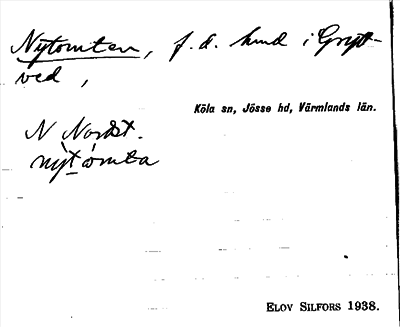 Nytomten, f.d. hmd i Grytt-
ved,
Köla sn, Jösse hd, Värmlands län.
N Nordst.
nỳt ómta
ELOV SILFORS 1938.